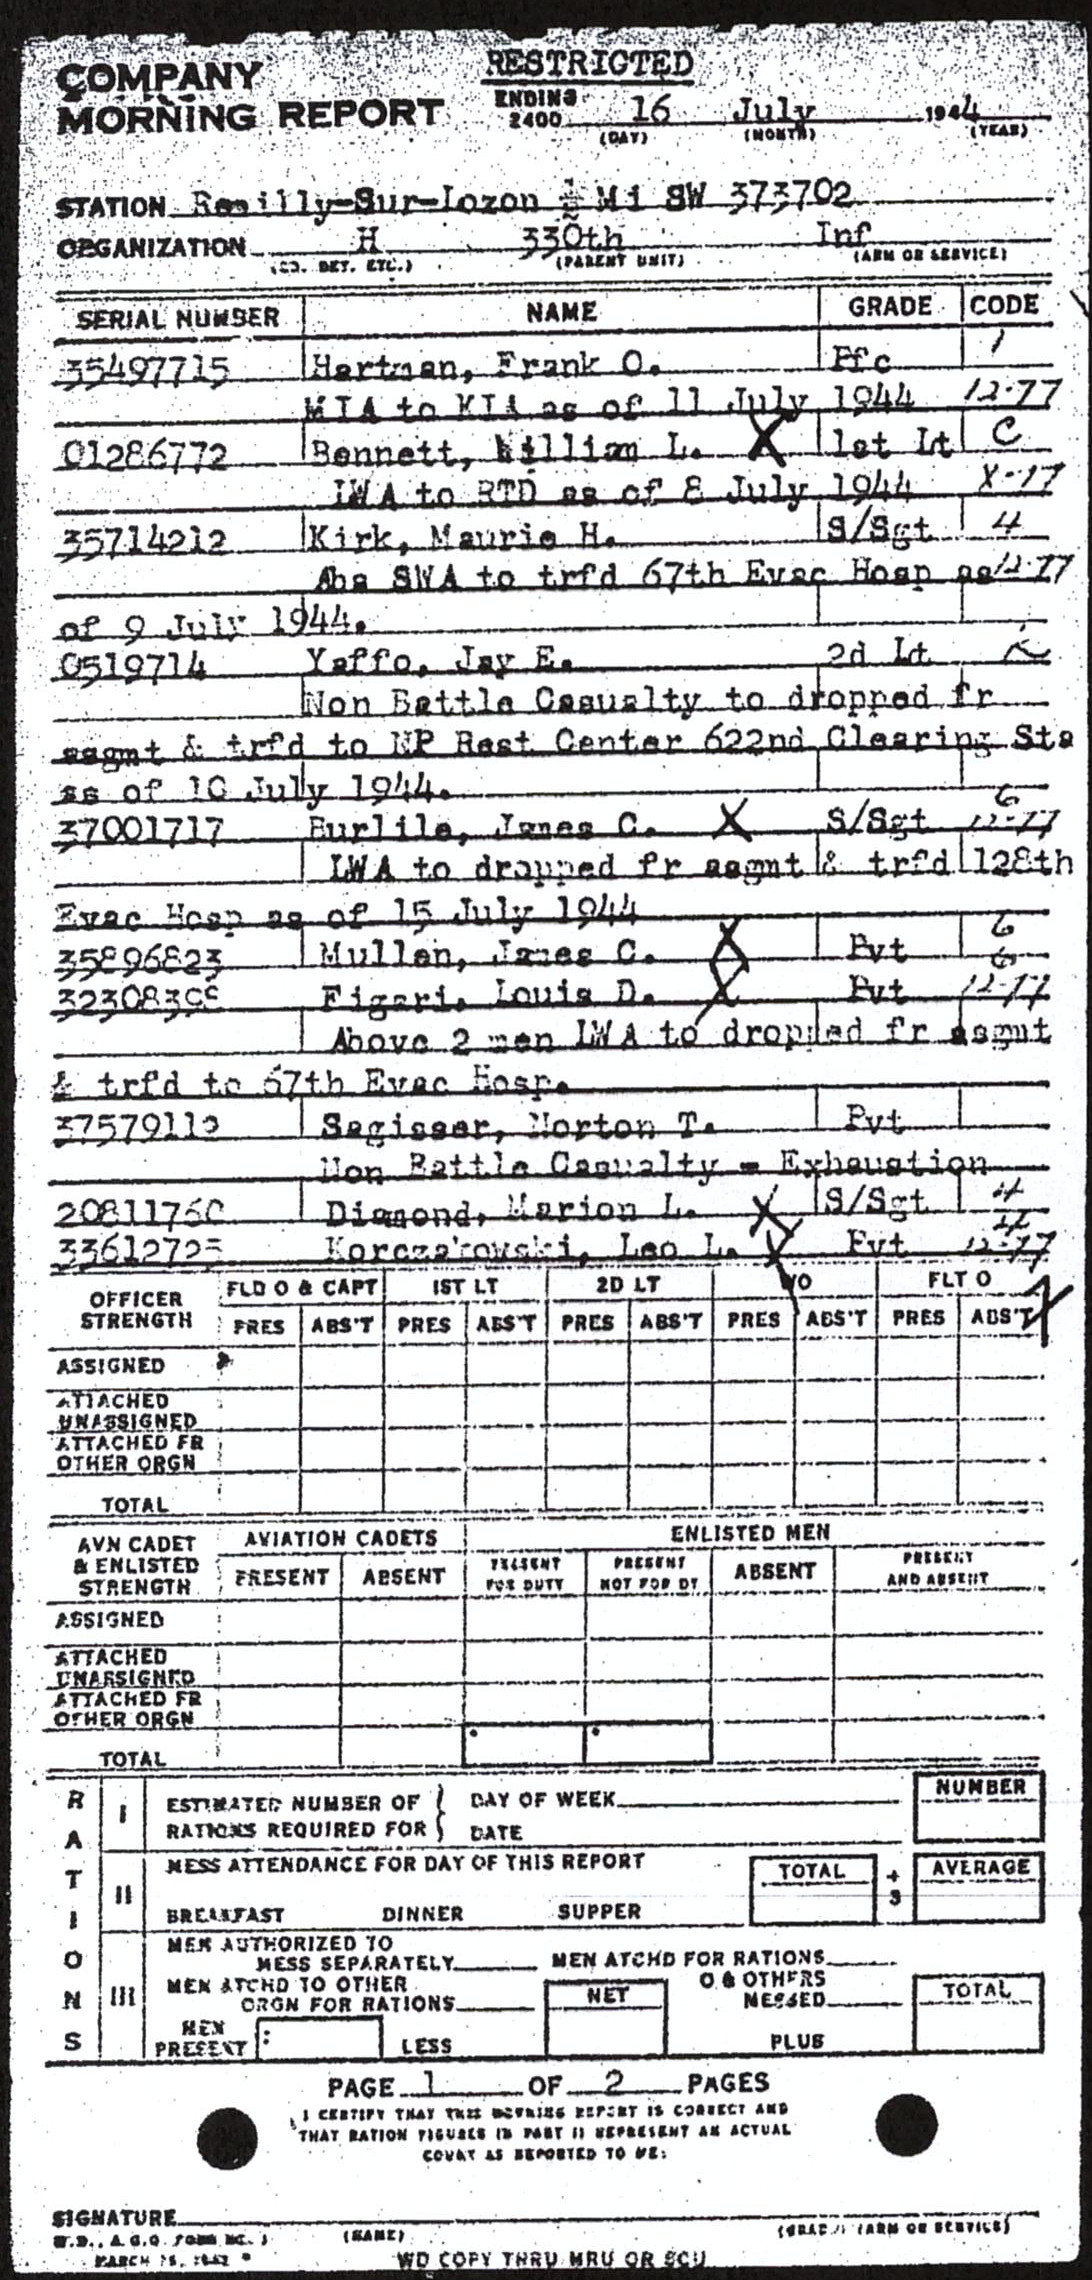 RESTRICTED
COMPANY
MORNING REPORT
ENDING 2400 16 July 1944
(DAY) (MONTH) (YEAR)
STATION Remilly-Sur-Lozon ½ Mi SW 373702
ORGANIZATION H 330th Inf
(CO. DET. ETC.) (PARENT UNIT) (ARM OR SERVICE)
SERIAL NUMBER NAME GRADE CODE
35497715 Hartman, Frank O. Pfc 1
MIA to KIA as of 11 July 1944 12-77
01286772 Bennett, William L. X 1st Lt C
LWA to RTD as of 8 July 1944 X-17
35714212 Kirk, Maurie H. S/Sgt 4
Abs SWA to trfd 67th Evac Hosp as 12-77
of 9 July 1944.
0519714 Yaffo, Jay E. 2d Lt
Non Battle Casualty to dropped fr
asgmt & trfd to NP Rest Center 622nd Clearing Sta
as of 10 July 1944.
6
37001717 Burlile, James C. X S/Sgt 12-77
LWA to dropped fr asgmt & trfd 128th
Evac Hosp as of 15 July 1944
35896823 Mullen, James C. X Pvt 6
6
32308398 Figari, Louis D. X Pvt 12-77
Above 2 men LWA to dropped fr asgmt
& trfd to 67th Evac Hosp.
Sagisser, Norton T. Pvt
Non Battle Casualty - Exhaustion
20811760 Diamond, Marion L. X S/Sgt 4
Korczakowski, Leo L. X Pvt 12-77
OFFICER STRENGTH FLD O & CAPT 1ST LT 2D LT WO FLT O
PRES ABS'T PRES ABS'T PRES ABS'T PRES ABS'T PRES ABS'T
ASSIGNED
ATTACHED UNASSIGNED
ATTACHED FR OTHER ORGN
TOTAL
AVN CADET & ENLISTED STRENGTH AVIATION CADETS ENLISTED MEN
PRESENT ABSENT PRESENT FOR DUTY PRESENT NOT FOR DY ABSENT PRESENT AND ABSENT
ASSIGNED
ATTACHED UNASSIGNED
ATTACHED FR OTHER ORGN
TOTAL
RATIONS
I ESTIMATED NUMBER OF RATIONS REQUIRED FOR { DAY OF WEEK
DATE
NUMBER
II MESS ATTENDANCE FOR DAY OF THIS REPORT TOTAL ÷ 3 AVERAGE
BREAKFAST DINNER SUPPER
III MEN AUTHORIZED TO
MESS SEPARATELY MEN ATCHD FOR RATIONS
MEN ATCHD TO OTHER
ORGN FOR RATIONS NET O & OTHERS MESSED TOTAL
MEN PRESENT LESS PLUS
PAGE 1 OF 2 PAGES
I CERTIFY THAT THIS MORNING REPORT IS CORRECT AND
THAT RATION FIGURES IN PART II REPRESENT AN ACTUAL
COUNT AS REPORTED TO ME:
SIGNATURE
(NAME) (GRADE) (ARM OR SERVICE)
W.D., A.G.O. FORM NO. 1
MARCH 15, 1942
WD COPY THRU MRU OR SCU